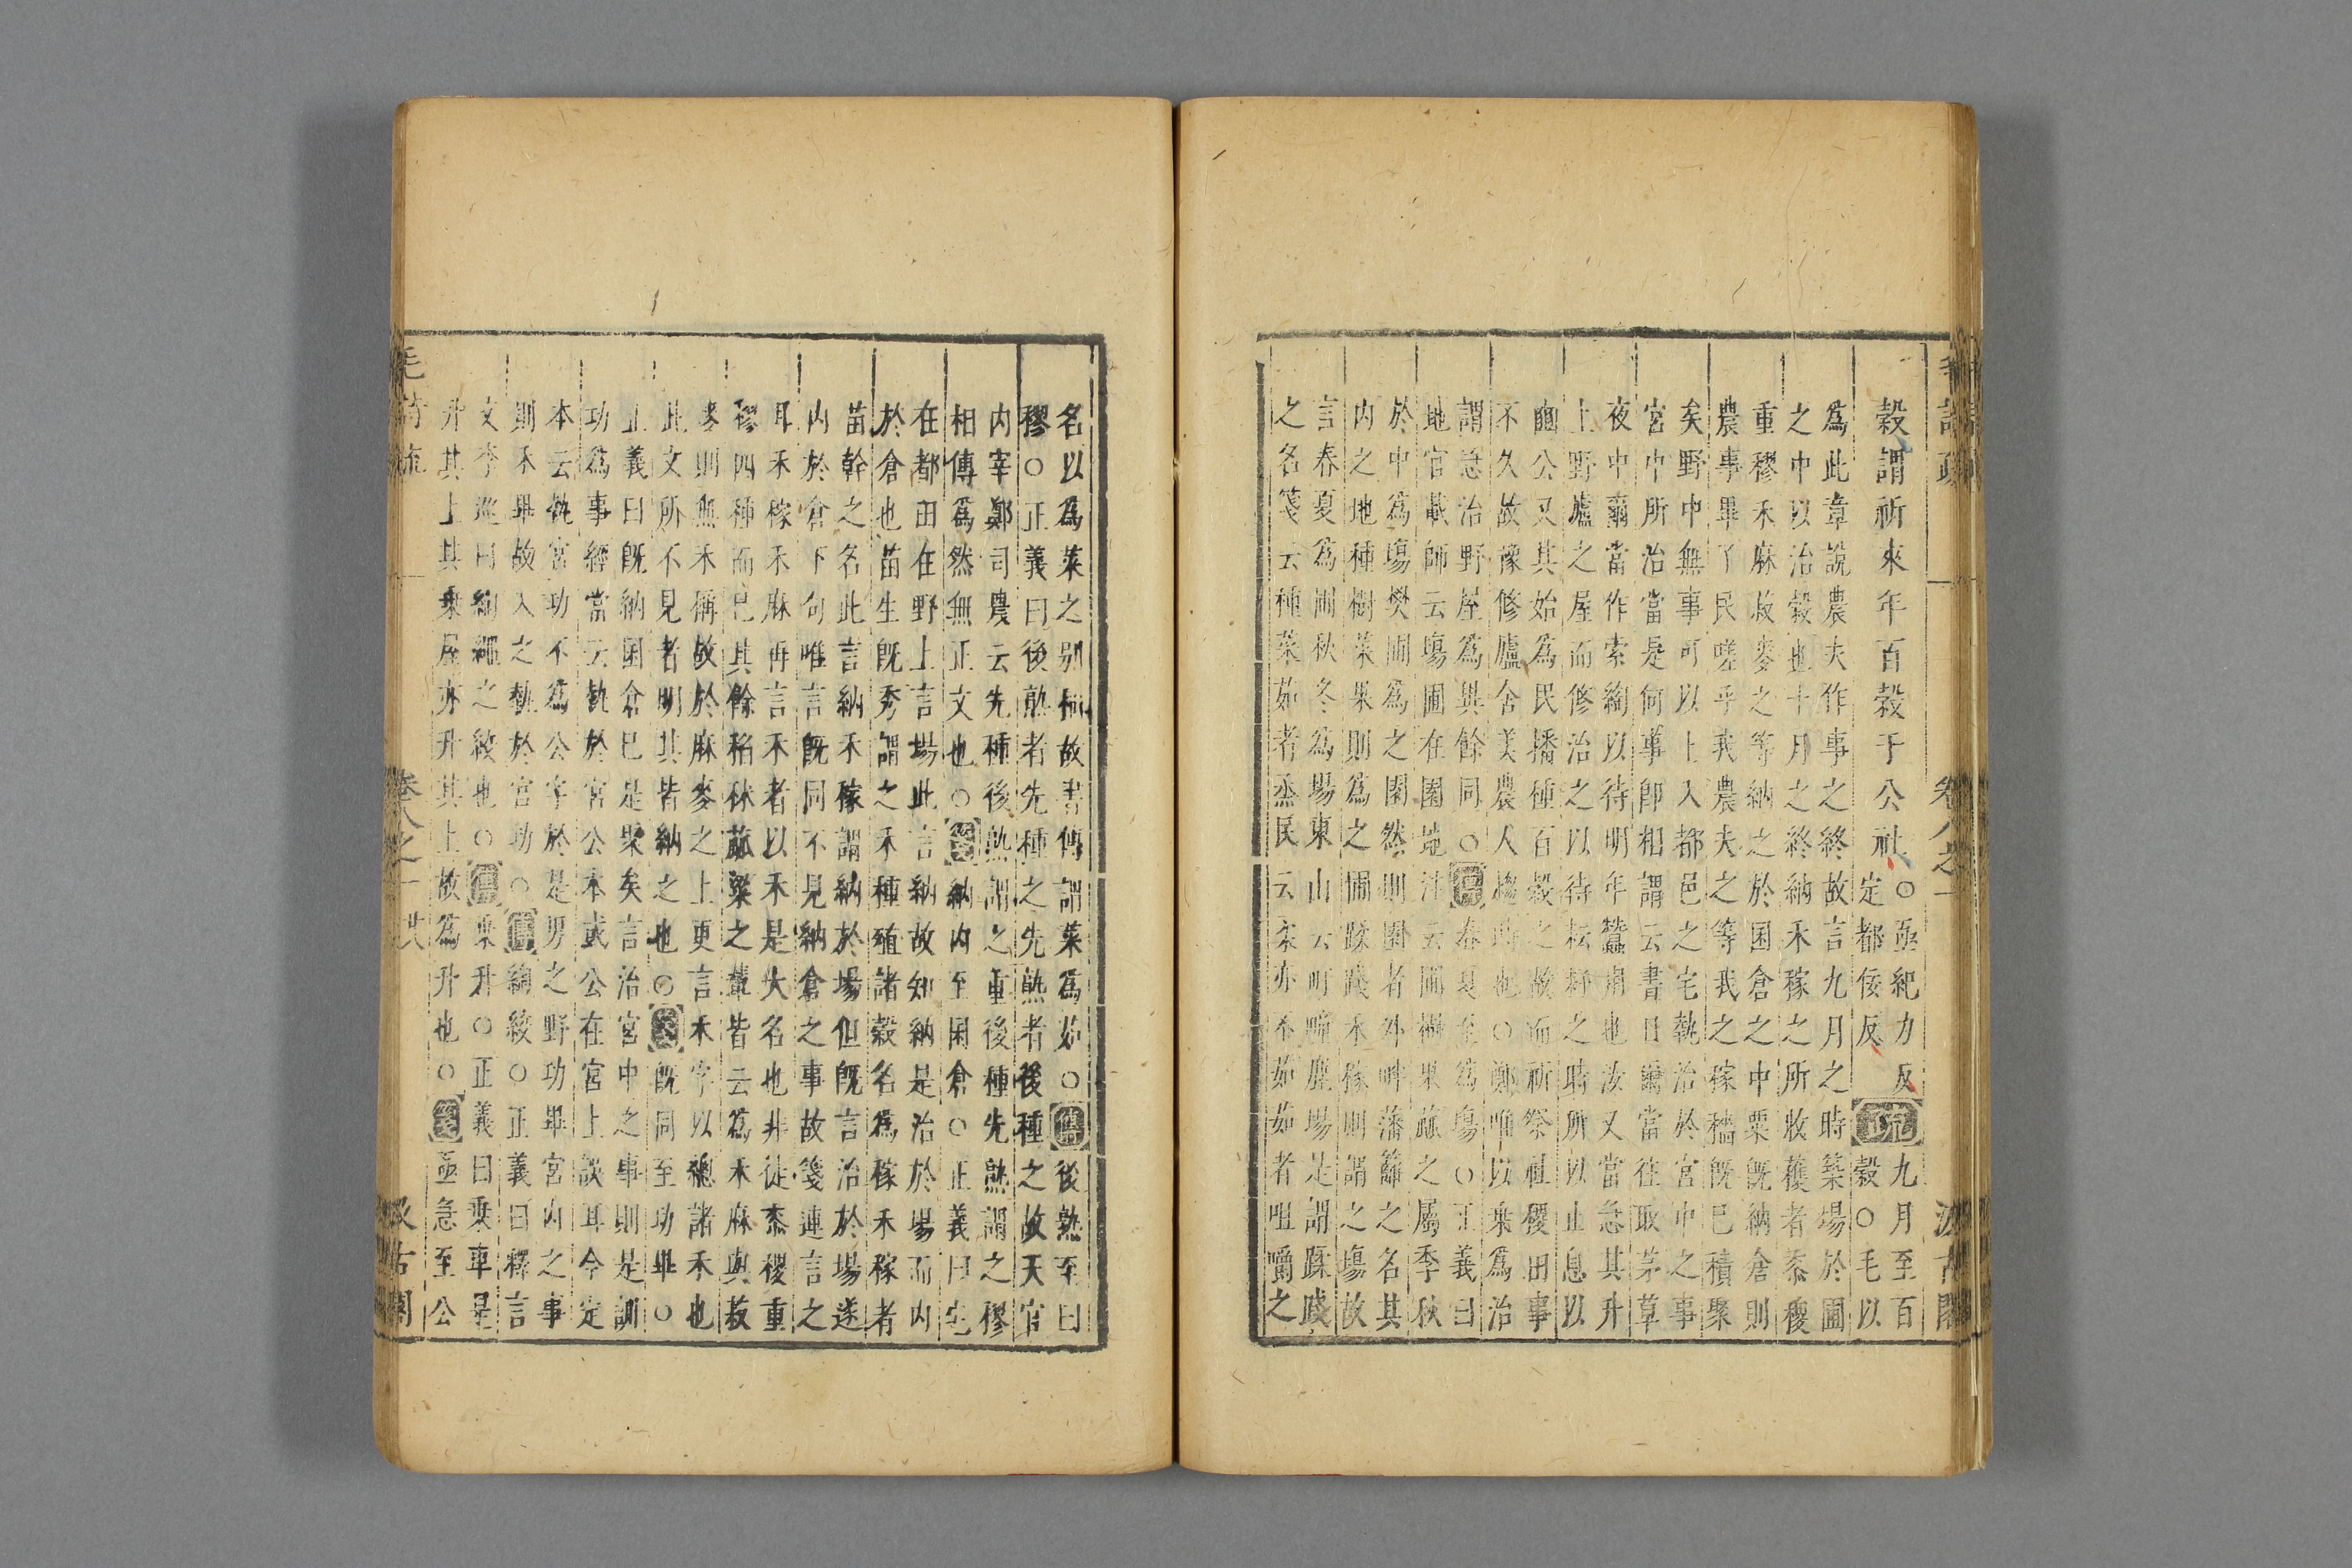 毛詩疏 卷八之一 汲古閣
穀謂祈來年百穀于公社
○亟紀力反疏九月至百
定都佞反正穀○毛以
爲此章說農夫作事之終故言九月之時築場於圃
之中以治穀也十月之終納禾稼之所收穫者黍稷
重穋禾麻菽麥之等納之於囷倉之中粟既納倉則
農事畢了民嗟乎我農夫之等我之稼穡既已積聚
矣野中無事可以上入都邑之宅執治於宮中之事
宮中所治當是何事即相謂云晝日爾當往取茅草
夜中爾當作索綯以待明年蠶用也汝又當急其升
上野廬之屋而修治之以待耘耔之時所以止息以
豳公又其始爲民播種百穀之故而祈祭社稷田事
不久故豫修廬舍美農人趨時也○鄭唯以乘爲治
謂急治野屋爲異餘同○傳春夏至爲場○正義曰
地官載師云場圃在園地注云圃樹果蓏之屬季秋
於中爲場樊圃爲之園然則園者外畔藩籬之名其
内之地種樹菜果則爲之圃蹂踐禾稼則謂之場故
言春夏爲圃秋冬爲場東山云町畽鹿場是謂蹂踐
之名箋云種菜茹者烝民云柔亦不茹茹者咀嚼之
名以爲菜之別稱故書傳謂菜爲茹○傳後熟至曰
穋○正義曰後熟者先種之先熟者後種之故天官
内宰鄭司農云先種後熟謂之重後種先熟謂之穋
相傳爲然無正文也○箋納内至囷倉○正義曰宅
在都田在野上言場此言納故知納是治於場而内
於倉也苗生既秀謂之禾種殖諸穀名爲稼禾稼者
苗幹之名此言納禾稼謂納於場但既言治於場遂
内於倉下句唯言既同不見納倉之事故箋連言之
耳禾稼禾麻再言禾者以禾是大名也非徒黍稷重
穋四種而已其餘稻秫蓏粱之輩皆云爲禾麻與菽
麥則無禾稱故於麻麥之上更言禾字以總諸禾也
此文所不見者明其皆納之也○箋既同至功畢○
正義曰既納囷倉已是聚矣言治宮中之事則是訓
功爲事經當云執於宮公本或公在宮上誤耳今定
本云執宮功不爲公字於是男之野功畢宮内之事
則禾畢故入之執於宮功○傳綯絞○正義曰釋言
文李巡曰綯繩之絞也○傳乘升○正義曰乘車是
升其上其乘屋亦升其上故爲升也○箋亟急至公
毛詩疏 卷八之一 廿 汲古閣